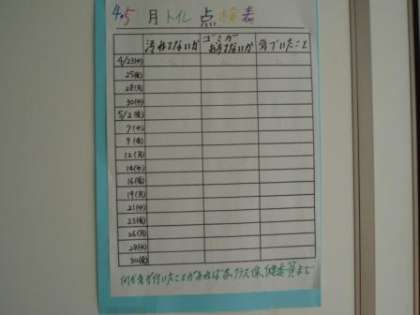 4.5月トイレ点検表
汚れてないか ゴミがおちてないか 気づいたこと
4/23(水)
25(金)
28(月)
30(水)
5/2(金)
7(水)
9(金)
12(月)
14(水)
16(金)
19(月)
21(水)
23(金)
26(月)
28(水)
30(金)
何か気が付いたことがあれば各クラス保健委員まで